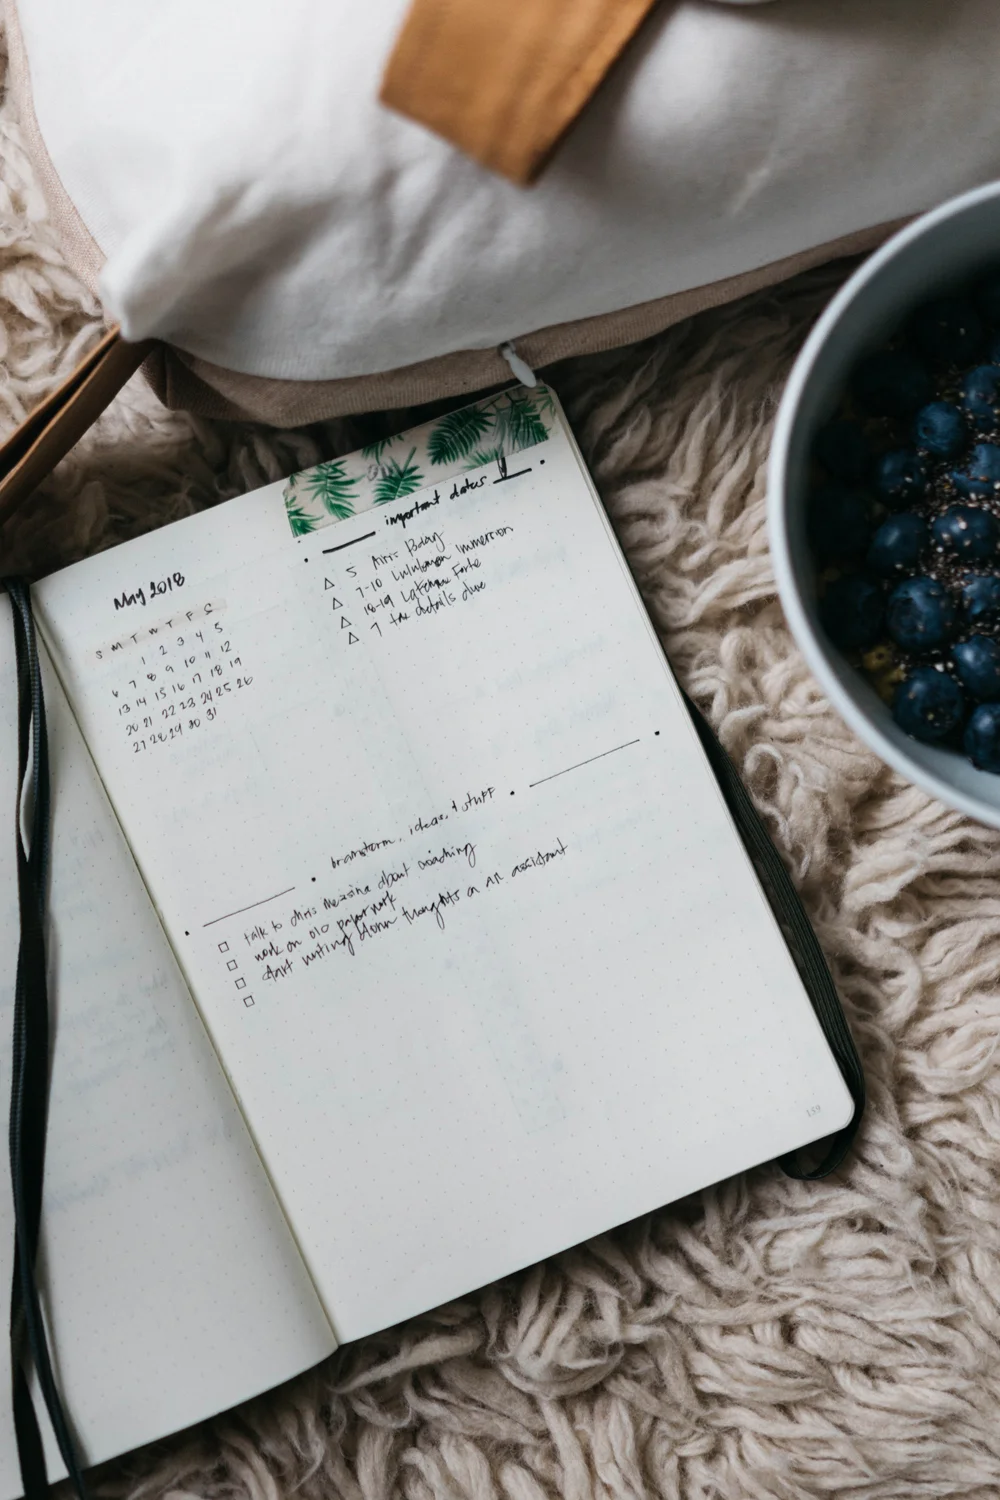 May 2018
S M T W T F S
1 2 3 4 5
6 7 8 9 10 11 12
13 14 15 16 17 18 19
20 21 22 23 24 25 26
27 28 29 30 31
important dates
5 Bday
7-10 Lululemon Immersion
10-19
7 tax details due
brainstorm, ideas, + stuff
talk to chris about coaching
work on paperwork
start writing down thoughts on an assistant
159